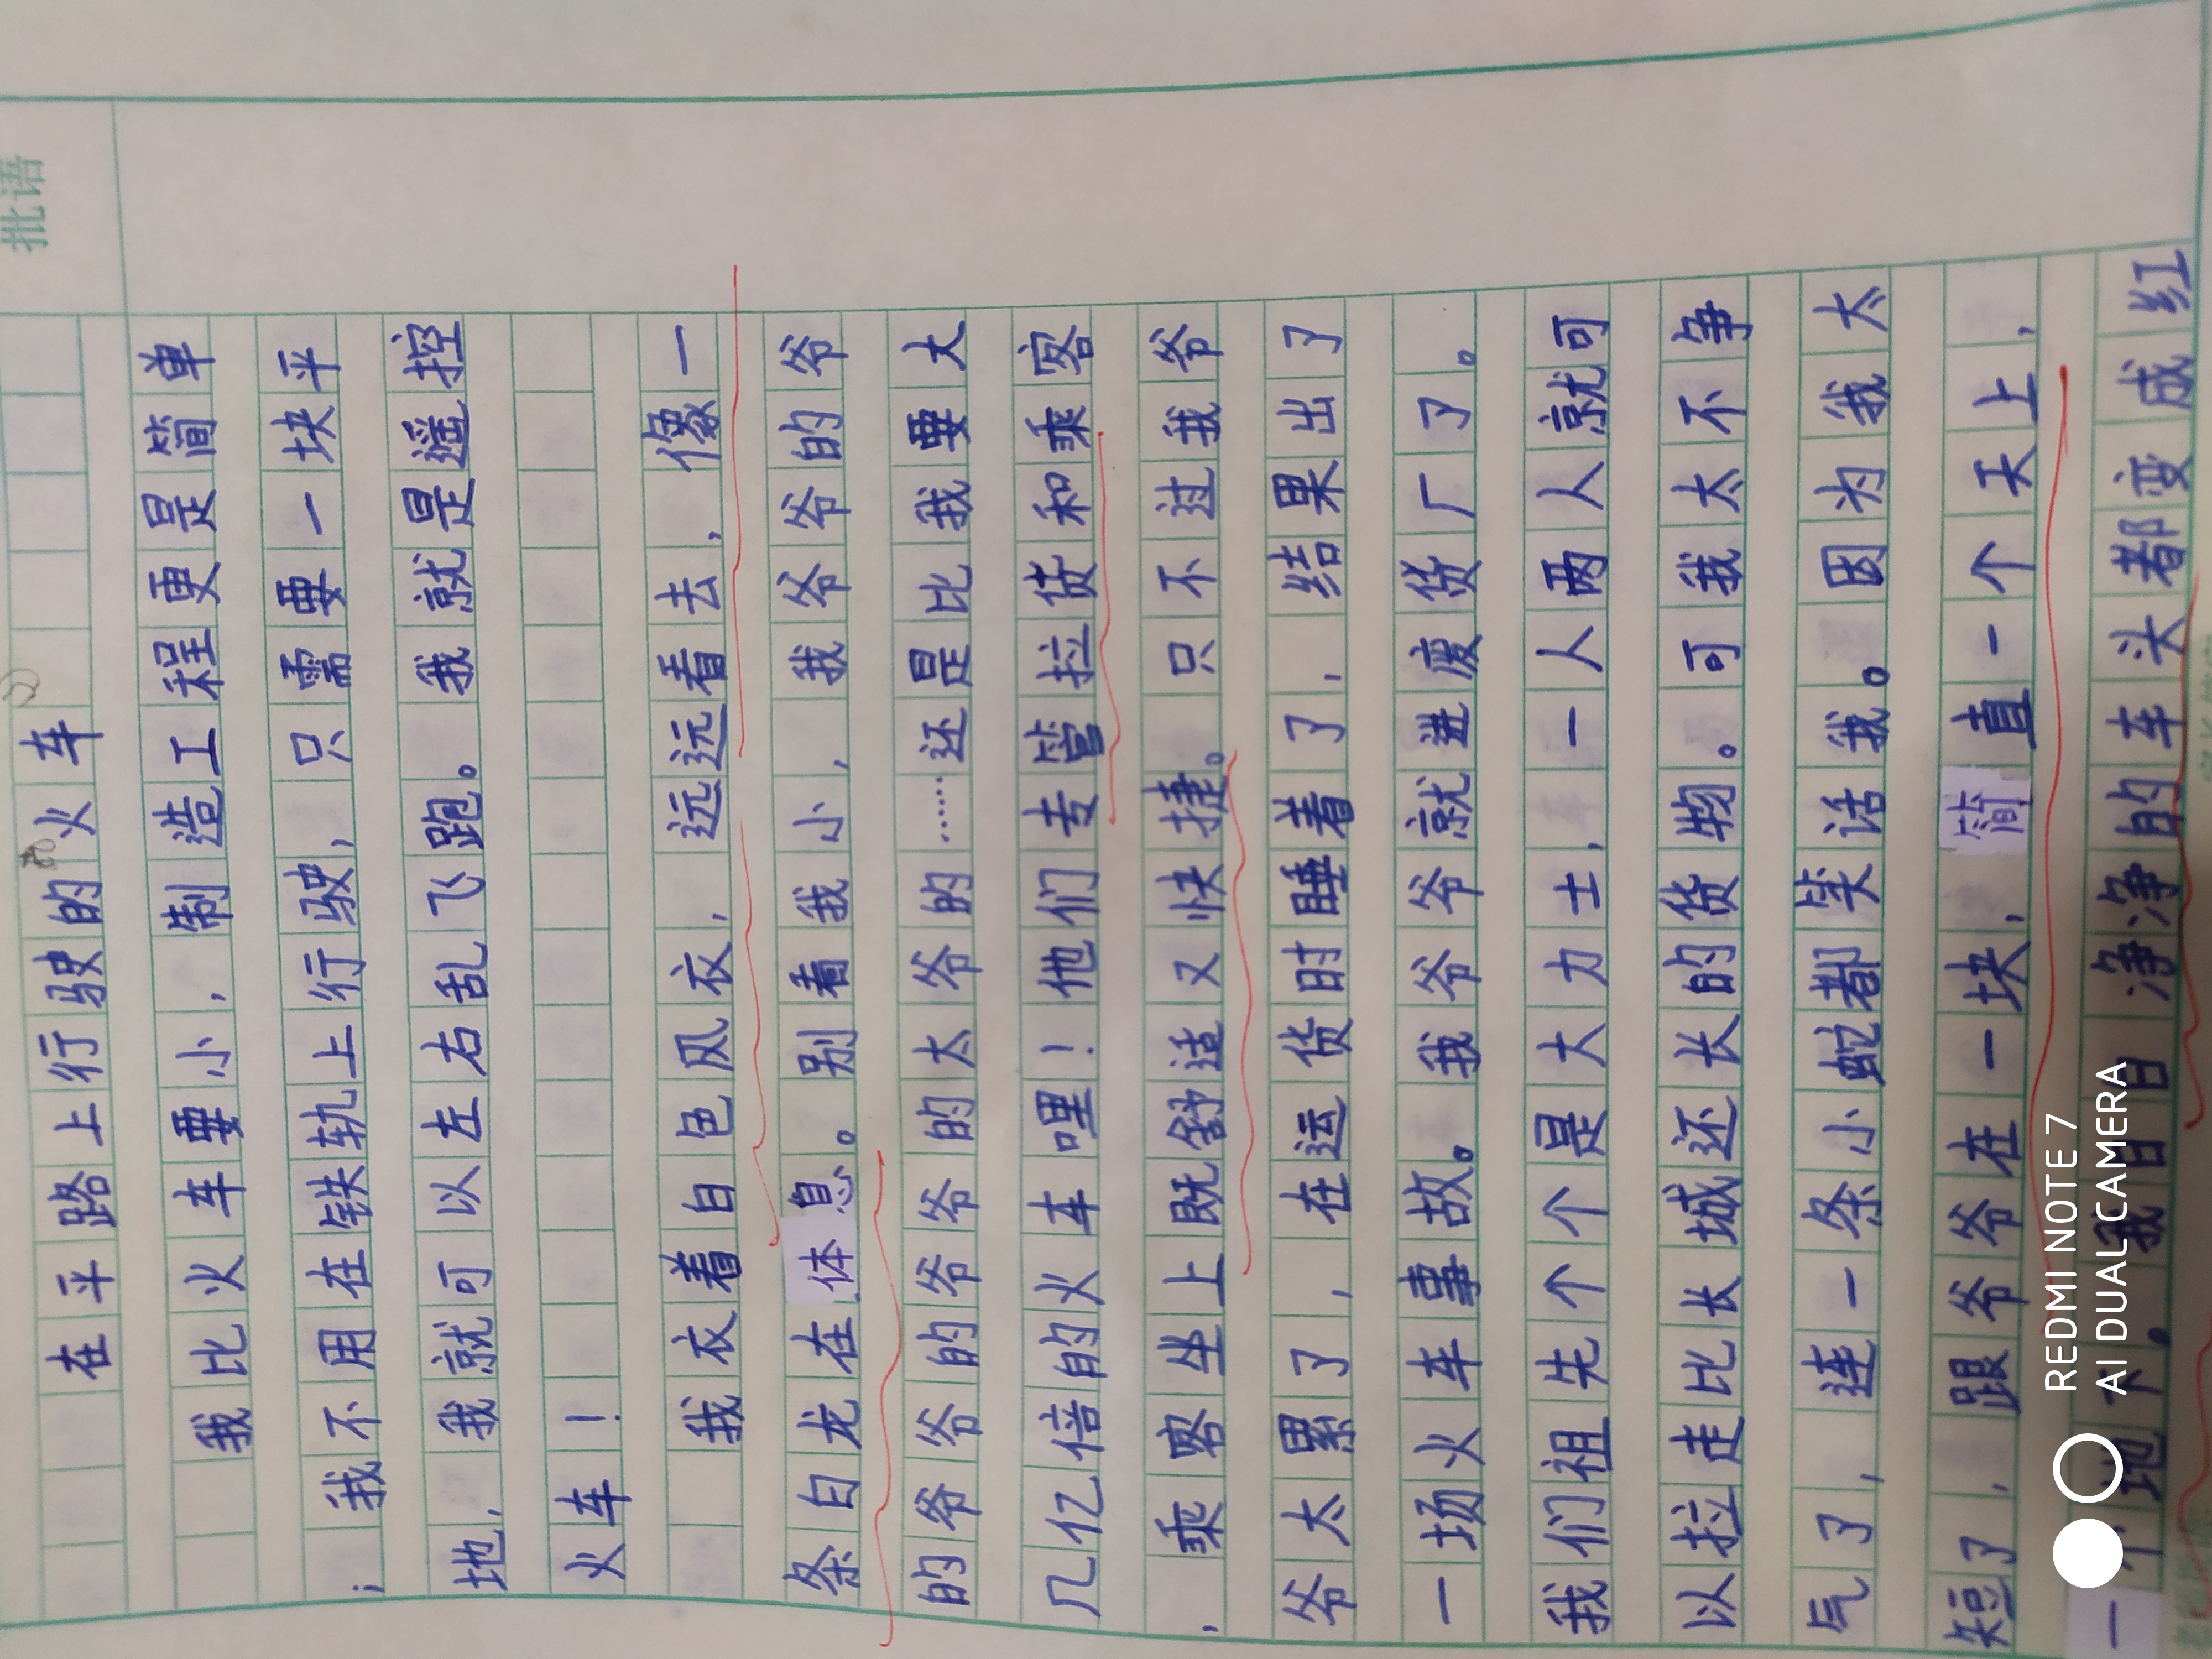 批语
在平路上行驶的火车
我比火车要小，制造工程更是简单
；我不用在铁轨上行驶，只需要一块平
地，我就可以左右乱飞跑。我就是遥控
火车！
我衣着白色风衣，远远看去，像一
条白龙在体息。别看我小，我爷爷的爷
的爷爷的爷爷的太爷的……还是比我要大
几亿倍的火车哩！他们专管拉货和乘客
，乘客坐上既舒适又快捷。只不过我爷
爷太累了，在运货时睡着了，结果出了
一场火车事故。我爷爷就进废货厂了。
我们祖先个个是大力士，一人两人就可
以拉走比长城还长的货物。可我太不争
气了，连一条小蛇都笑话我。因为我太
短了，跟爷爷在一块，简直一个天上，
一个地下。我白白净净的车头都变成红
REDMI NOTE 7
AI DUAL CAMERA